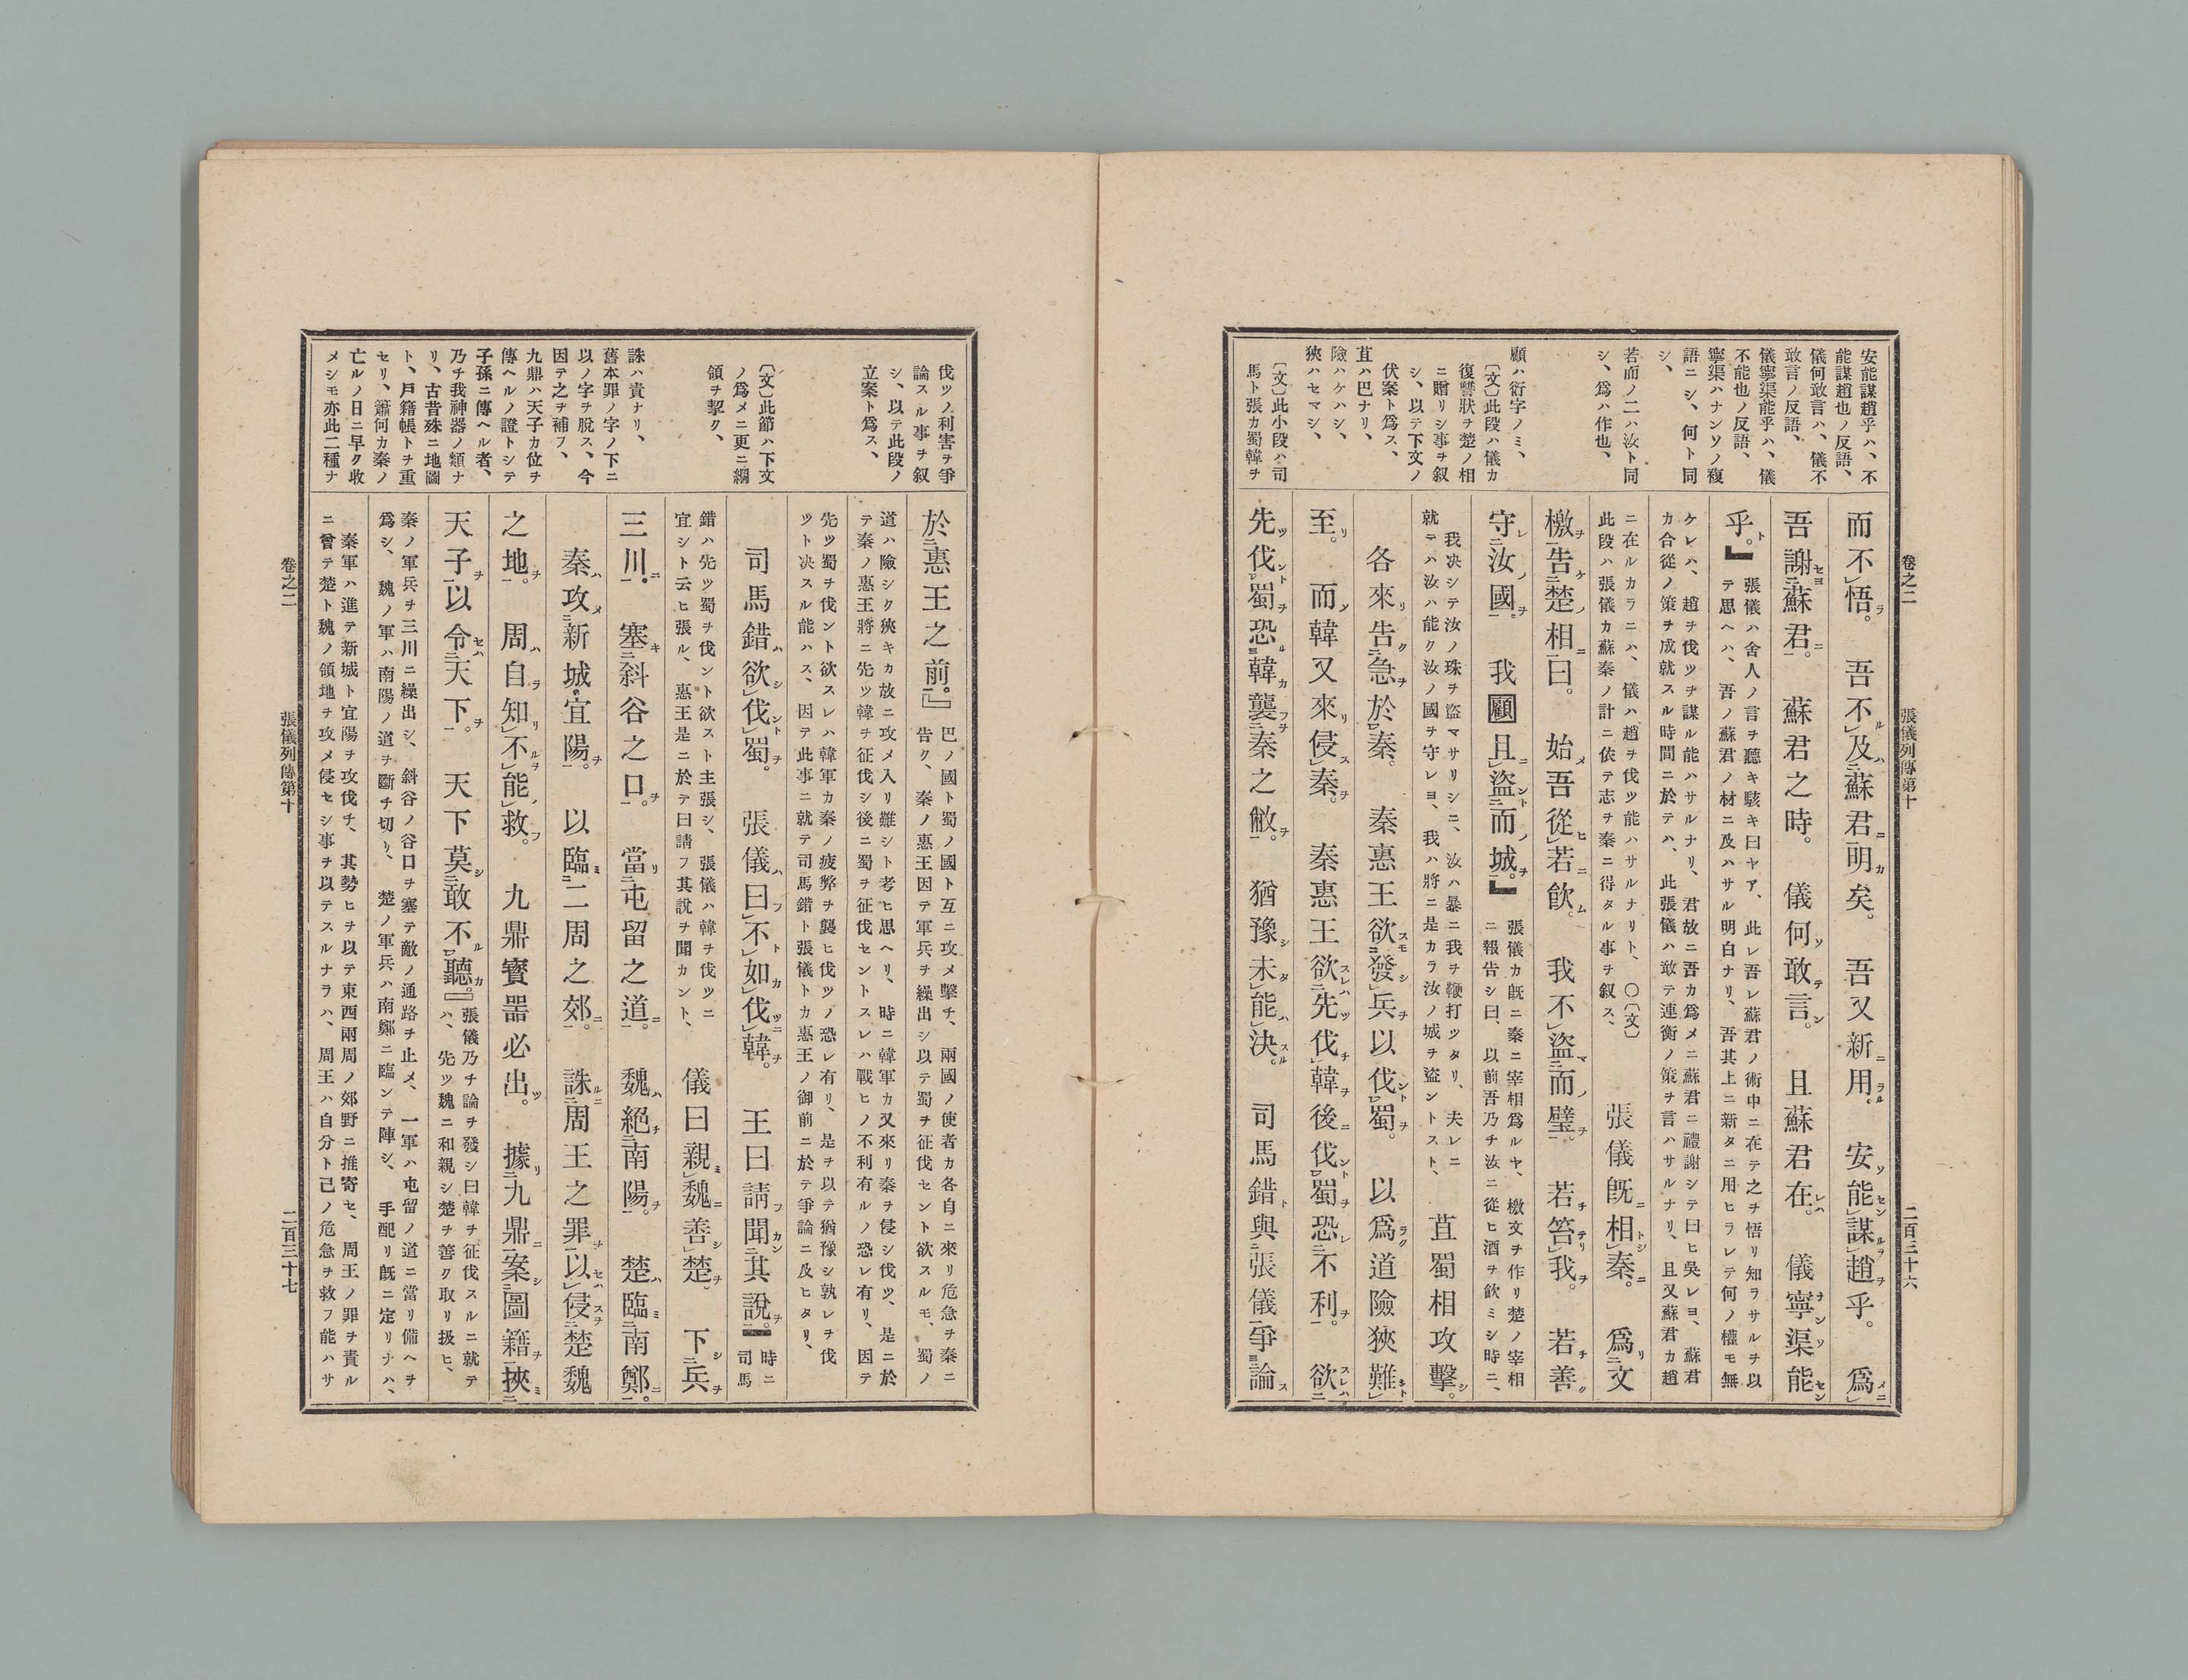 卷之二
張儀列傳第十
二百三十六
安能謀趙乎ハ、不
能謀趙也ノ反語、
儀何敢言ハ、儀不
敢言ノ反語、
儀寧渠能乎ハ、儀
不能也ノ反語、
寧渠ハナンソノ複
語ニシ、何ト同
シ、
若而ノ二ハ汝ト同
シ、爲ハ作也、
顧ハ衍字ノミ、
〔文〕此段ハ儀カ
復讐狀ヲ楚ノ相
ニ贈リシ事ヲ叙
シ、以テ下文ノ
伏案ト爲ス、
苴ハ巴ナリ、
險ハケハシ、
狹ハセマシ、
〔文〕此小段ハ司
馬ト張カ蜀韓ヲ
而不レ悟ラ。吾不レ及ハ二蘇君ニ一明カ矣。吾又新ニ用ラル。安ソ能センレ謀ルヲレ趙ヲ乎。爲メニレ
吾謝セヨ二蘇君ニ一。蘇君之時。儀何ソ敢テ言ン。且蘇君在レハ。儀寧ナンソ渠能セン
乎ト。』張儀ハ舍人ノ言ヲ聽キ駭キ曰ヤア、此レ吾レ蘇君ノ術中ニ在テ之ヲ悟リ知ラサルヲ以
テ思ヘハ、吾ノ蘇君ノ材ニ及ハサル明白ナリ、吾其上ニ新タニ用ヒラレテ何ノ權モ無
ケレハ、趙ヲ伐ツヲ謀ル能ハサルナリ、君故ニ吾カ爲メニ蘇君ニ禮謝シテ曰ヒ吳レヨ、蘇君
カ合從ノ策ヲ成就スル時間ニ於テハ、此張儀ハ敢テ連衡ノ策ヲ言ハサルナリ、且又蘇君カ趙
ニ在ルカラニハ、儀ハ趙ヲ伐ツ能ハサルナリト、〇〔文〕
此段ハ張儀カ蘇秦ノ計ニ依テ志ヲ秦ニ得タル事ヲ叙ス、
張儀既ニ相トシレ秦ニ。爲リ二文
檄ヲ一告ケ二楚ノ相ニ一曰。始メ吾從ヒレ若ニ飮ム。我不レ盜マ二而ノ璧ヲ一。若チ笞テリレ我ヲ。若チ善ク
守レ二汝ノ國ヲ一。我顧且ニレ盜ント二而ノ城ヲ一。』張儀カ既ニ秦ニ宰相爲ルヤ、檄文ヲ作リ楚ノ宰相
ニ報告シ曰、以前吾乃チ汝ニ從ヒ酒ヲ飮ミシ時ニ、
我決シテ汝ノ珠ヲ盜マサリシニ、汝ハ暴ニ我ヲ鞭打ツタリ、夫レニ
就テハ汝ハ能ク汝ノ國ヲ守レヨ、我ハ將ニ是カラ汝ノ城ヲ盜ントスト、
苴蜀相攻擊シ。
各來リ告ク二急ヲ於秦一。秦惠王欲スモ二發シレ兵ヲ以伐ントレ蜀ヲ。以爲ラク道險狹難シトレ
至リ。而ソ韓又來リ侵スレ秦ヲ。秦惠王欲スレハ二先ツ伐チレ韓ヲ後ニ伐ントレ蜀ヲ恐レ二不利ヲ一。欲スレハ二
先ツ伐ントレ蜀ヲ恐ル三韓カ襲フヲ二秦之敝ヲ一。猶豫シ未タレ能ハレ決スル。司馬錯ト與二張儀一爭論ス
伐ツノ利害ヲ爭
論スル事ヲ叙
シ、以テ此段ノ
立案ト爲ス、
〔文〕此節ハ下文
ノ爲メニ更ニ綱
領ヲ挈ク、
誅ハ責ナリ、
舊本罪ノ字ノ下ニ
以ノ字ヲ脫ス、今
因テ之ヲ補フ、
九鼎ハ天子カ位ヲ
傳ヘルノ證トシテ
子孫ニ傳ヘル者、
乃チ我神器ノ類ナ
リ、古昔殊ニ地圖
ト、戶籍帳トヲ重
セリ、簫何カ秦ノ
亡ルノ日ニ早ク收
メシモ亦此二種ナ
於二惠王之前一。』巴ノ國ト蜀ノ國ト互ニ攻メ擊チ、兩國ノ使者カ各自ニ來リ危急ヲ秦ニ
告ク、秦ノ惠王因テ軍兵ヲ繰出シ以テ蜀ヲ征伐セント欲スルモ、蜀ノ
道ハ險シク狹キカ故ニ攻メ入リ難シト考ヒ思ヘリ、時ニ韓軍カ又來リ秦ヲ侵シ伐ツ、是ニ於
テ秦ノ惠王將ニ先ツ韓ヲ征伐シ後ニ蜀ヲ征伐セントスレハ戰ヒノ不利有ルノ恐レ有リ、因テ
先ツ蜀ヲ伐ント欲スレハ韓軍カ秦ノ疲弊ヲ襲ヒ伐ツノ恐レ有リ、是ヲ以テ猶豫シ孰レヲ伐
ツト決スル能ハス、因テ此事ニ就テ司馬錯ト張儀トカ惠王ノ御前ニ於テ爭論ニ及ヒタリ、
司馬錯ハ欲シレ伐ントレ蜀ヲ。張儀ハ曰フレ不トレ如カレ伐ツニレ韓ヲ。王曰請フ聞カン二其說ヲ一。』時ニ
司馬
錯ハ先ツ蜀ヲ伐ント欲スト主張シ、張儀ハ韓ヲ伐ツニ
宜シト云ヒ張ル、惠王是ニ於テ曰請フ其說ヲ聞カント、
儀曰親ミレ魏ニ善シレ楚ヲ。下シ二兵ヲ
三川ニ一。塞キ二斜谷之口ヲ一。當リ二屯留之道ニ一。魏ハ絕チ二南陽ヲ一。楚ハ臨ミ二南鄭ニ一。
秦ハ攻メ二新城宜陽ヲ一。以臨ミ二二周之郊ニ一。誅ルニ二周王之罪ヲ一以セハレ侵スヲ二楚魏
之地ヲ一。周ハ自ラ知リレ不ルヲレ能ハレ救フ。九鼎寶器必出ツ。據リ二九鼎ニ一案シ二圖籍ヲ一挾ミ二
天子ヲ一以令セハ二天下ヲ一。天下莫シ二敢不ルレ聽カ一。』張儀乃チ論ヲ發シ曰韓ヲ征伐スルニ就テ
ハ、先ツ魏ニ和親シ楚ヲ善ク取リ扱ヒ、
秦ノ軍兵ヲ三川ニ繰出シ、斜谷ノ谷口ヲ塞テ敵ノ通路ヲ止メ、一軍ハ屯留ノ道ニ當リ備ヘヲ
爲シ、魏ノ軍ハ南陽ノ道ヲ斷チ切リ、楚ノ軍兵ハ南鄭ニ臨ンテ陣シ、手配リ既ニ定リナハ、
秦軍ハ進テ新城ト宜陽ヲ攻伐チ、其勢ヒヲ以テ東西兩周ノ郊野ニ推寄セ、周王ノ罪ヲ責ル
ニ曾テ楚ト魏ノ領地ヲ攻メ侵セシ事ヲ以テスルナラハ、周王ハ自分ト己ノ危急ヲ救フ能ハサ
卷之二
張儀列傳第十
二百三十七